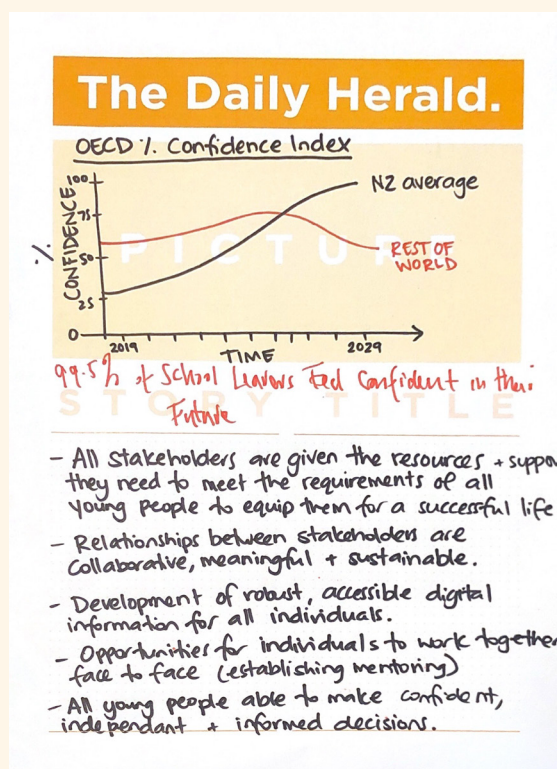 The Daily Herald.
OECD % Confidence Index
100
75
50
25
0
% CONFIDENCE
NZ average
REST OF
WORLD
PICTURE
2019
TIME
2029
99.5% of School Leavers Feel Confident in their
Future
STORY TITLE
- All stakeholders are given the resources + suppo
they need to meet the requirements of all
young people to equip them for a successful life
- Relationships between stakeholders are
collaborative, meaningful + sustainable.
- Development of robust, accessible digital
information for all individuals.
- Opportunities for individuals to work together
face to face (establishing mentoring)
- All young people able to make confident,
independant + informed decisions.